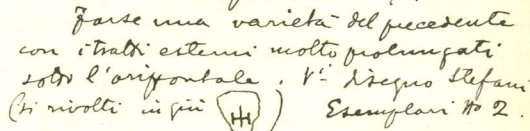 Forse una varietà del precedente
con i tratti esterni molto prolungati
sotto l'orizzontale. Vi disegno Stefani
(si rivolti in giù) Esemplari No 2.